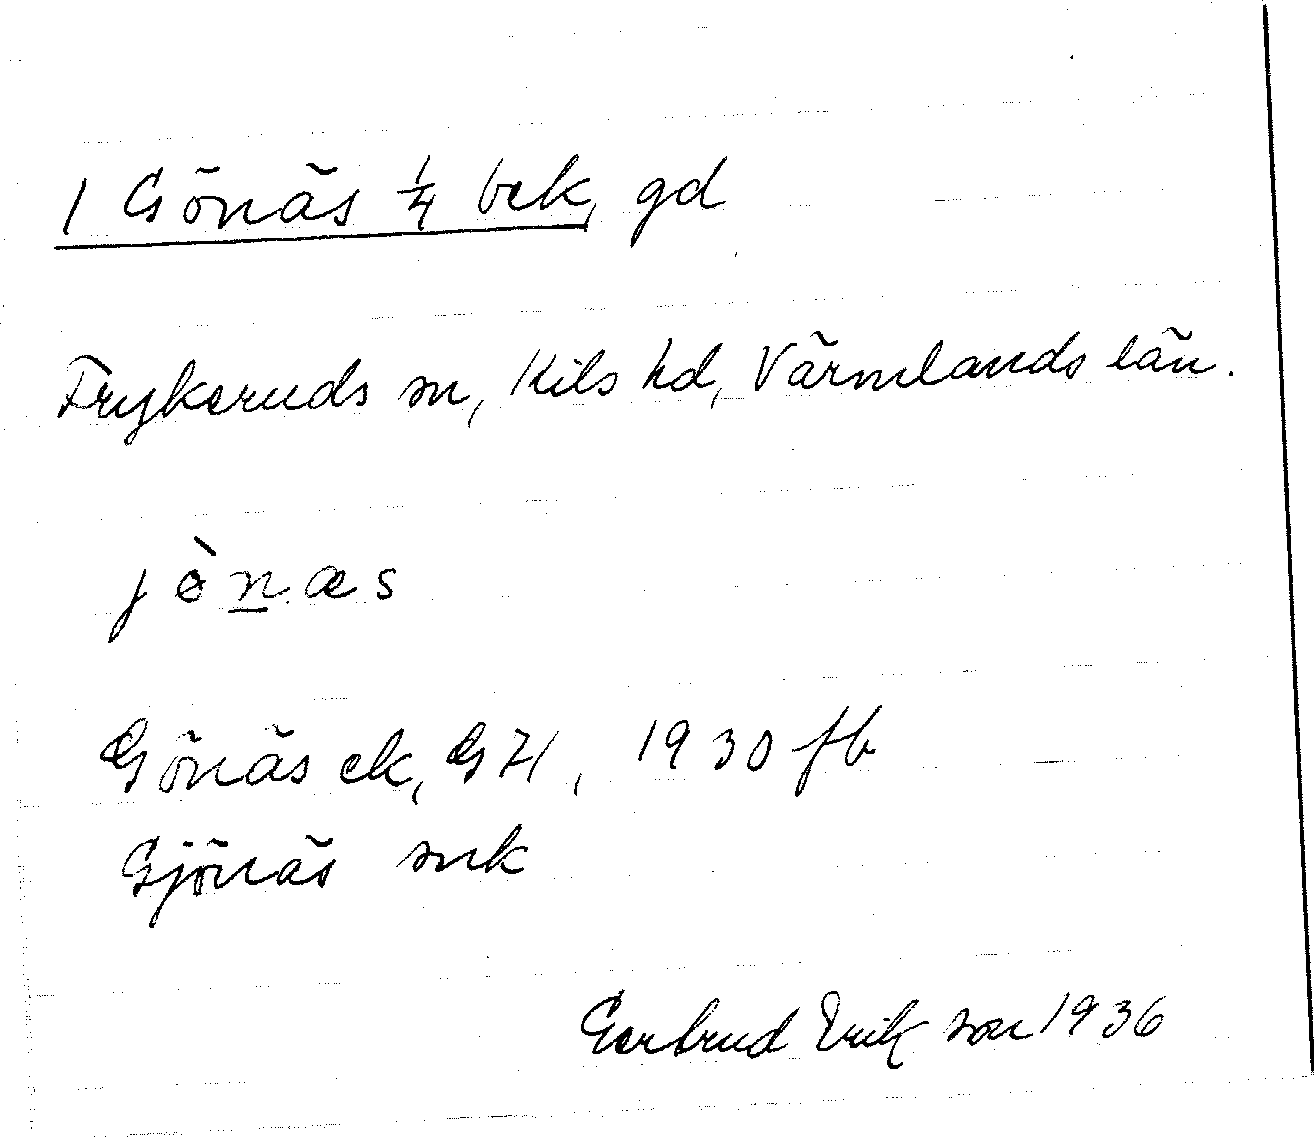 1 Gönäs 1/4 bek, gd
Frykeruds sn, Kils hd, Värmlands län.
jònæs
Gönäs ek, GH, 1930 fb
Gjönäs snk
Gertrud Erikson 1936